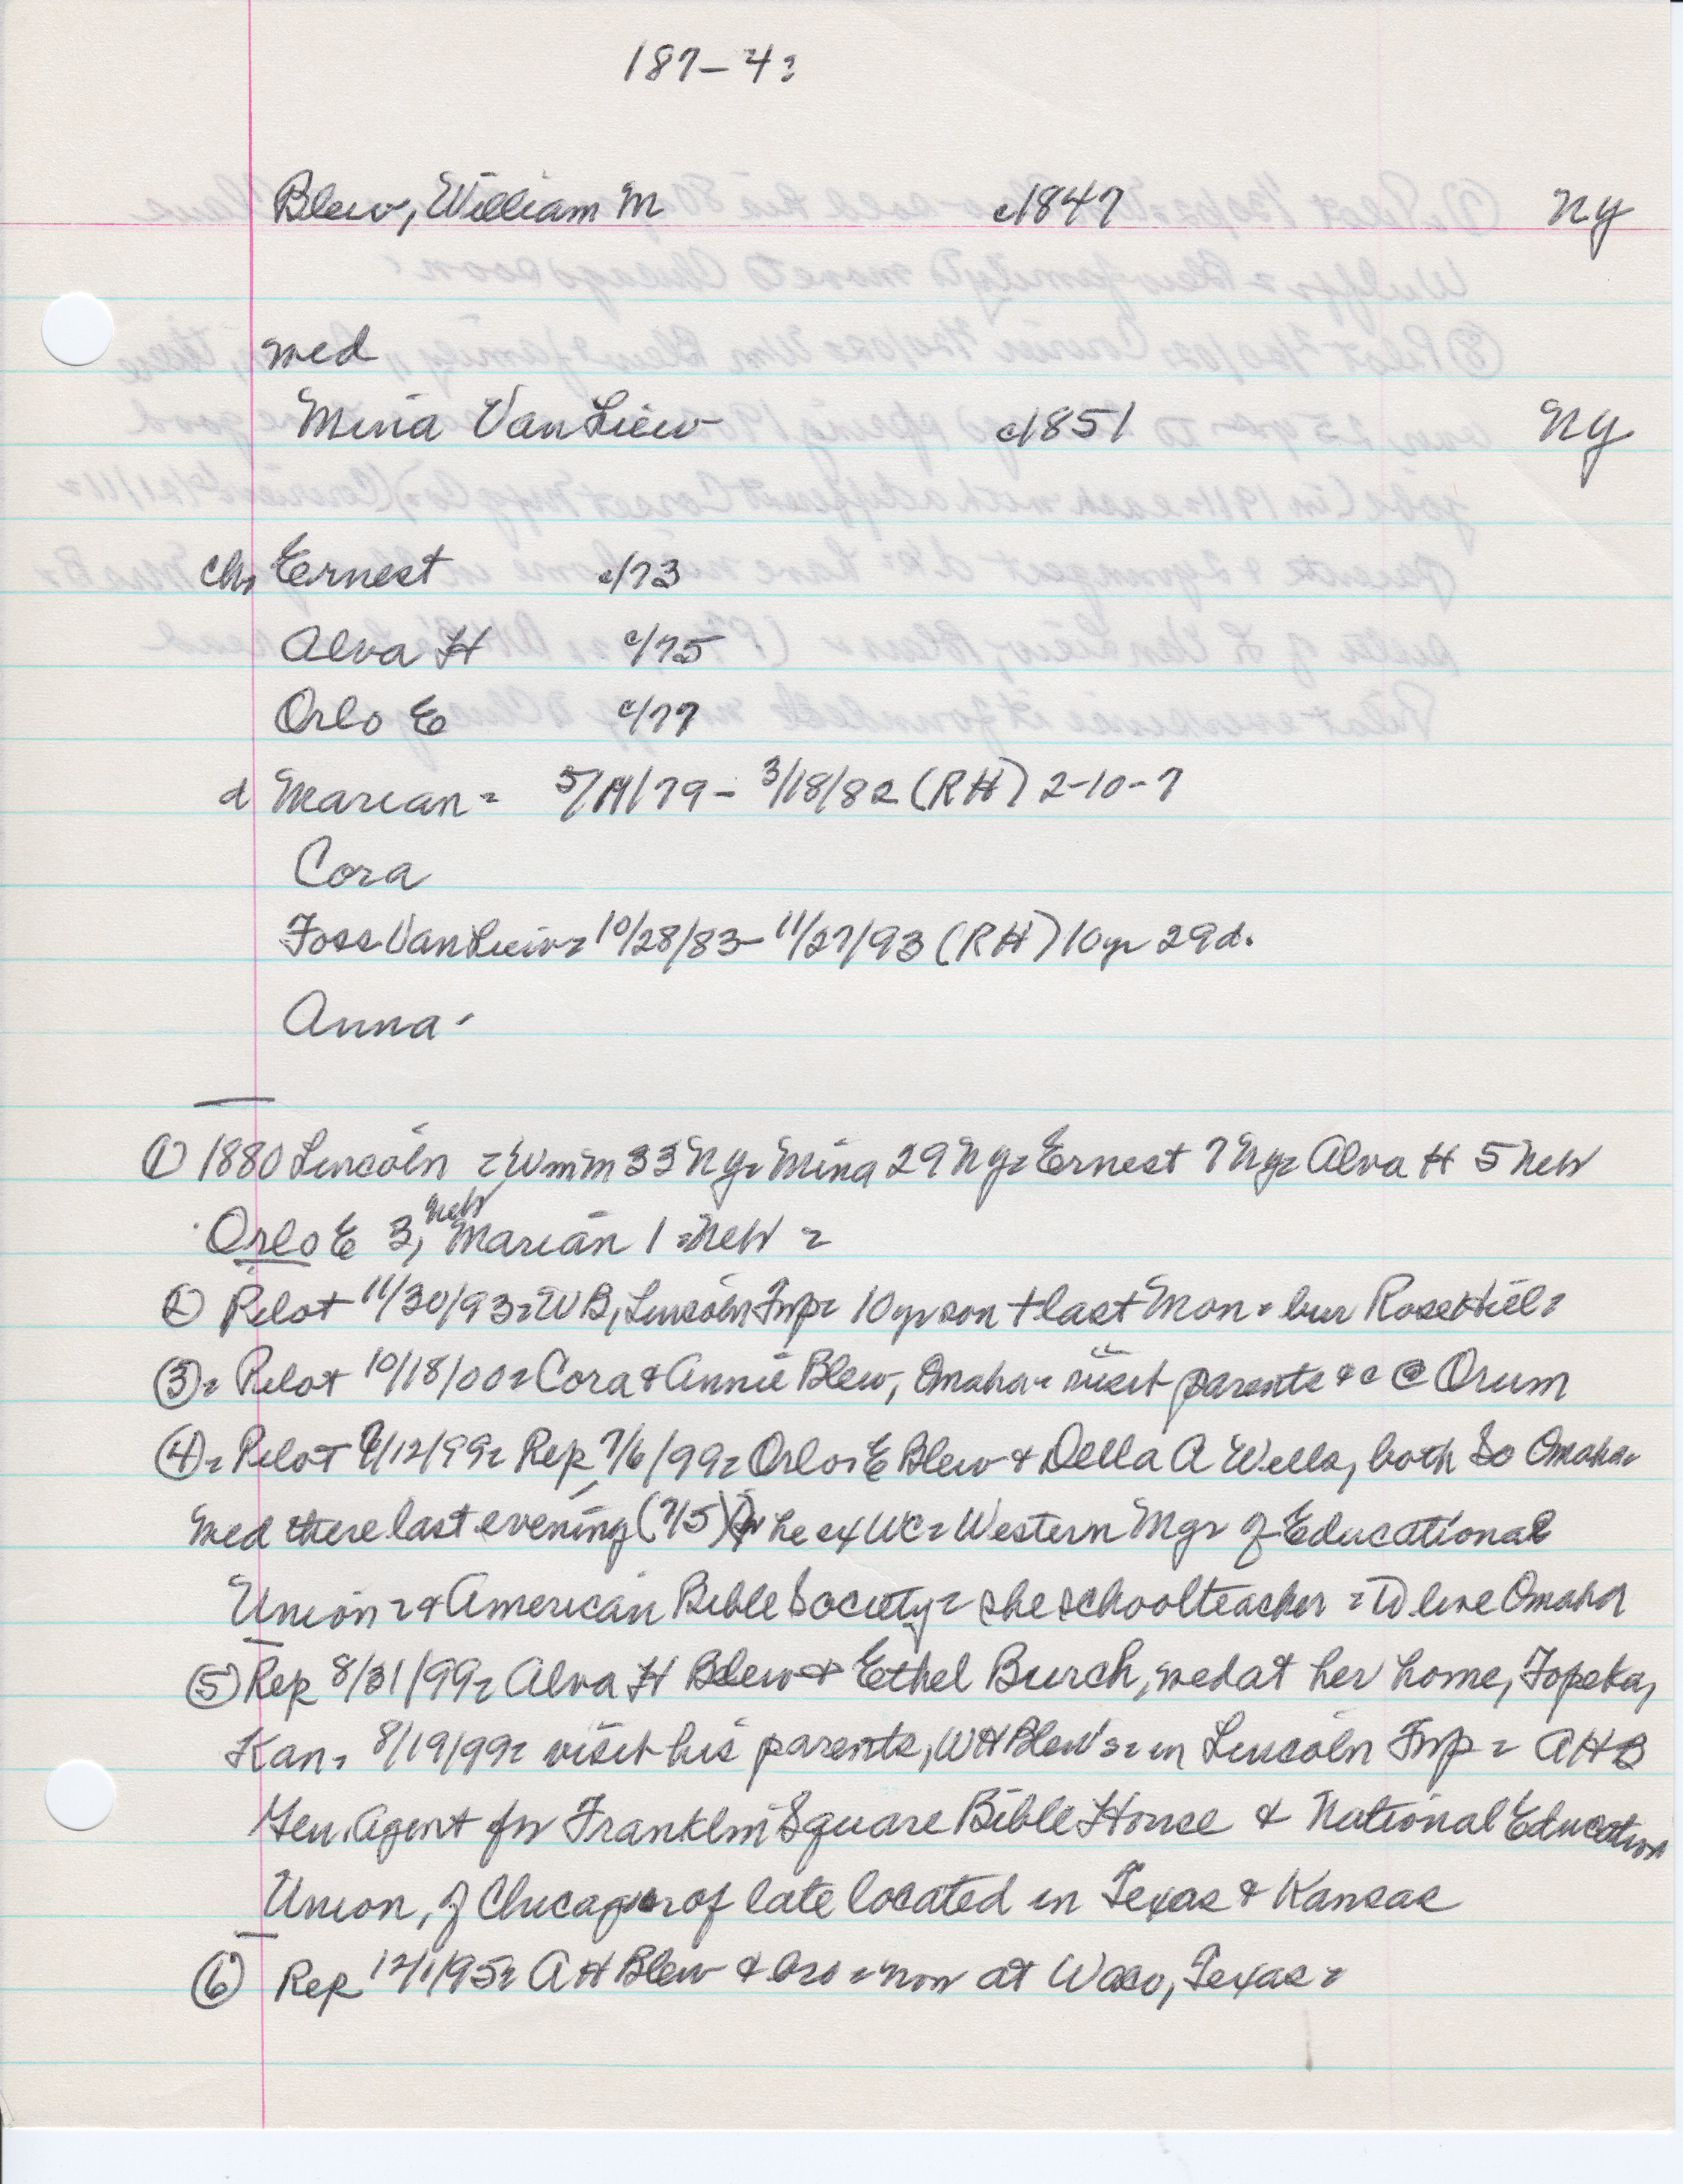 187-4:
Blew, William M c1847 NY
med
Mina VanLiew c1851 NY
ch, Ernest c/73
Alva H c/75
Orlo E c/77
d Marian = 5/19/79 - 3/18/82 (RH) 2-10-7
Cora
Foss VanLiew = 10/28/83 - 11/27/93 (RH) 10yr 29d.
Anna
① 1880 Lincoln = Wm M 33 NY = Mina 29 NY = Ernest 7 NY = Alva H 5 Neb
Orlo E 3, Neb Marian 1 = Neb =
② Pilot 11/30/93 = WB, Lincoln Twp = 10 yr son + last Mon = bur Rose Hill =
③ = Pilot 10/18/00 = Cora & Annie Blew, Omaha = visit parents &c @ Orum
④ = Pilot 7/12/99 = Rep 7/6/99 = Orlo E Blew & Della A Wells, both So Omaha =
med there last evening (7/5) he ex WC = Western Mgr of Educational
Union = & American Bible Society = she schoolteacher = to live Omaha
⑤ Rep 8/31/99 = Alva H Blew & Ethel Burch, med at her home, Topeka,
Kan, 8/19/99 = visit his parents, WH Blew's = in Lincoln Twp = AHB
Gen. Agent for Franklin Square Bible House & National Education
Union, of Chicago = of late located in Texas & Kansas
⑥ Rep 12/1/95 = A H Blew & bro = now at Waco, Texas =